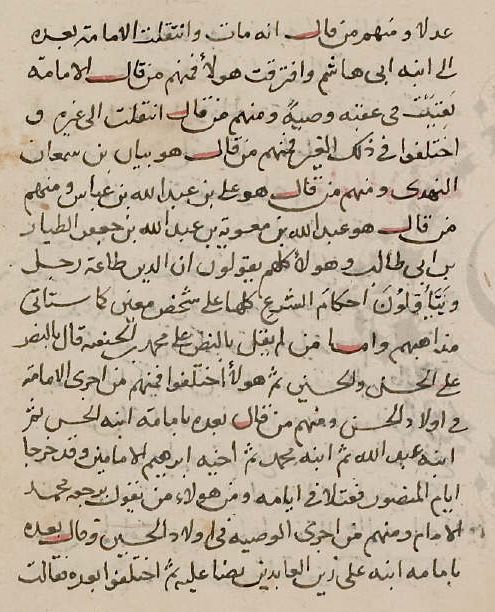 عدلا ومنهم من قال انه مات وانتقلت الامامة بعده
الى ابنه ابى هاشم وافترقت هولأ فمنهم من قال الامامة
بقيت فى عقبه وصيةً ومنهم من قال انتقلت الى غيره و
اختلفوا فى ذلك الغير فمنهم من قال هو بيان بن سمعان
النهدى ومنهم من قال هو على بن عبد الله بن عباس ومنهم
من قال هو عبد الله بن معوية بن عبد الله بن جعفر الطيار
بن ابى طالب وهولأ كلهم يقولون ان الدين طاعة رجل
ويتأولون احكام الشرع كلها على شخص معين كما ستاتى
مذاهبهم واما من لم يقل بالنص على محمد بن الحنفية قال بالنص
على الحسن والحسين ثم هولأ اختلفوا فمنهم من اجرى الامامة
فى اولاد الحسن ومنهم من قال بعده بامامة ابنه الحسن ثم
ابنه عبد الله ثم ابنه محمد ثم اخيه ابرهيم الامامين وقد خرجا
ايام المنصور فقتلا فى ايامه ومن هولاء من يقول برجعة محمد
الامام ومنهم من اجرى الوصية فى اولاد الحسين وقال بعده
بامامة ابنه على زين العابدين نصا عليه ثم اختلفوا بعده فقالت